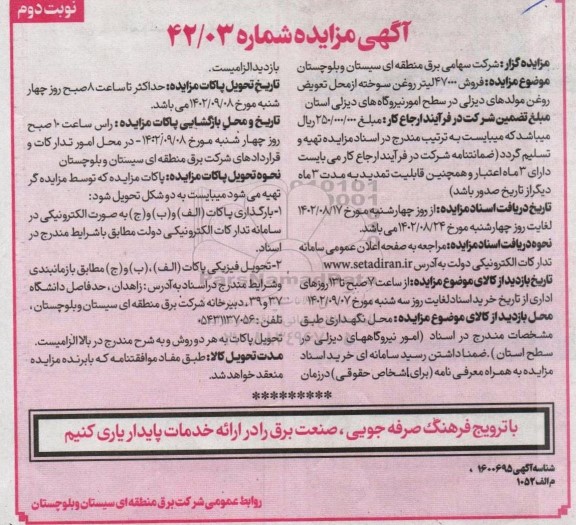 نوبت دوم
آگهی مزایده شماره ۴۲/۰۳
مزایده گزار : شرکت سهامی برق منطقه ای سیستان وبلوچستان
موضوع مزایده : فروش ۴۷۰۰۰ لیتر روغن سوخته از محل تعویض
روغن مولدهای دیزلی در سطح امور نیروگاه های دیزلی استان
مبلغ تضمین شرکت در فرآیند ارجاع کار : مبلغ ۲۵۰/۰۰۰/۰۰۰ ریال
میباشد که میبایست به ترتیب مندرج در اسناد مزایده تهیه و
تسلیم گردد (ضمانتنامه شرکت در فرآیند ارجاع کار می بایست
دارای ۳ ماه اعتبار و همچنین قابلیت تمدید به مدت ۳ ماه
دیگر از تاریخ صدور باشد)
تاریخ دریافت اسناد مزایده : از روز چهارشنبه مورخ ۱۴۰۲/۰۸/۱۷
لغایت روز چهارشنبه مورخ ۱۴۰۲/۰۸/۲۴ می باشد.
نحوه دریافت اسناد مزایده : مراجعه به صفحه اعلان عمومی سامانه
تدارکات الکترونیکی دولت به آدرس www.setadiran.ir
تاریخ بازدید از کالای موضوع مزایده : از ساعت ۷ صبح تا ۱۳ روزهای
اداری از تاریخ خرید اسناد لغایت روز سه شنبه مورخ ۱۴۰۲/۰۹/۰۷
محل بازدید از کالای موضوع مزایده : محل نگهداری طبق
مشخصات مندرج در اسناد (امور نیروگاههای دیزلی در
سطح استان) . ضمنا داشتن رسید سامانه ای خرید اسناد
مزایده به همراه معرفی نامه (برای اشخاص حقوقی) در زمان
بازدید الزامیست.
تاریخ تحویل پاکات مزایده : حداکثر تا ساعت ۸ صبح روز چهار
شنبه مورخ ۱۴۰۲/۰۹/۰۸ می باشد.
تاریخ و محل بازگشایی پاکات مزایده : راس ساعت ۱۰ صبح
روز چهار شنبه مورخ ۱۴۰۲/۰۹/۰۸ - در محل امور تدارکات و
قراردادهای شرکت برق منطقه ای سیستان وبلوچستان
نحوه تحویل پاکات مزایده : پاکات مزایده که توسط مزایده گر
تهیه می شود میبایست به دو شکل تحویل شود :
۱- بارگذاری پاکات (الف) و (ب) و (ج) به صورت الکترونیکی در
سامانه تدارکات الکترونیکی دولت مطابق با شرایط مندرج در
اسناد.
۲- تحویل فیزیکی پاکات (الف) ، (ب) و (ج) مطابق بازمانبندی
وشرایط مندرج در اسناد به آدرس : زاهدان ، حدفاصل دانشگاه
۳۷ و ۳۹ ، دبیرخانه شرکت برق منطقه ای سیستان وبلوچستان ،
تلفن : ۰۵۴۳۱۱۳۷۰۵۶
تحویل پاکات به هر دو روش و به شرح مندرج در بالا الزامیست.
مدت تحویل کالا : طبق مفاد موافقتنامه که با برنده مزایده
منعقد خواهد شد.
*********
با ترویج فرهنگ صرفه جویی ، صنعت برق را در ارائه خدمات پایدار یاری کنیم
شناسه آگهی ۱۶۰۰۶۹۵ ،
م الف ۱۰۵۲
روابط عمومی شرکت برق منطقه ای سیستان وبلوچستان